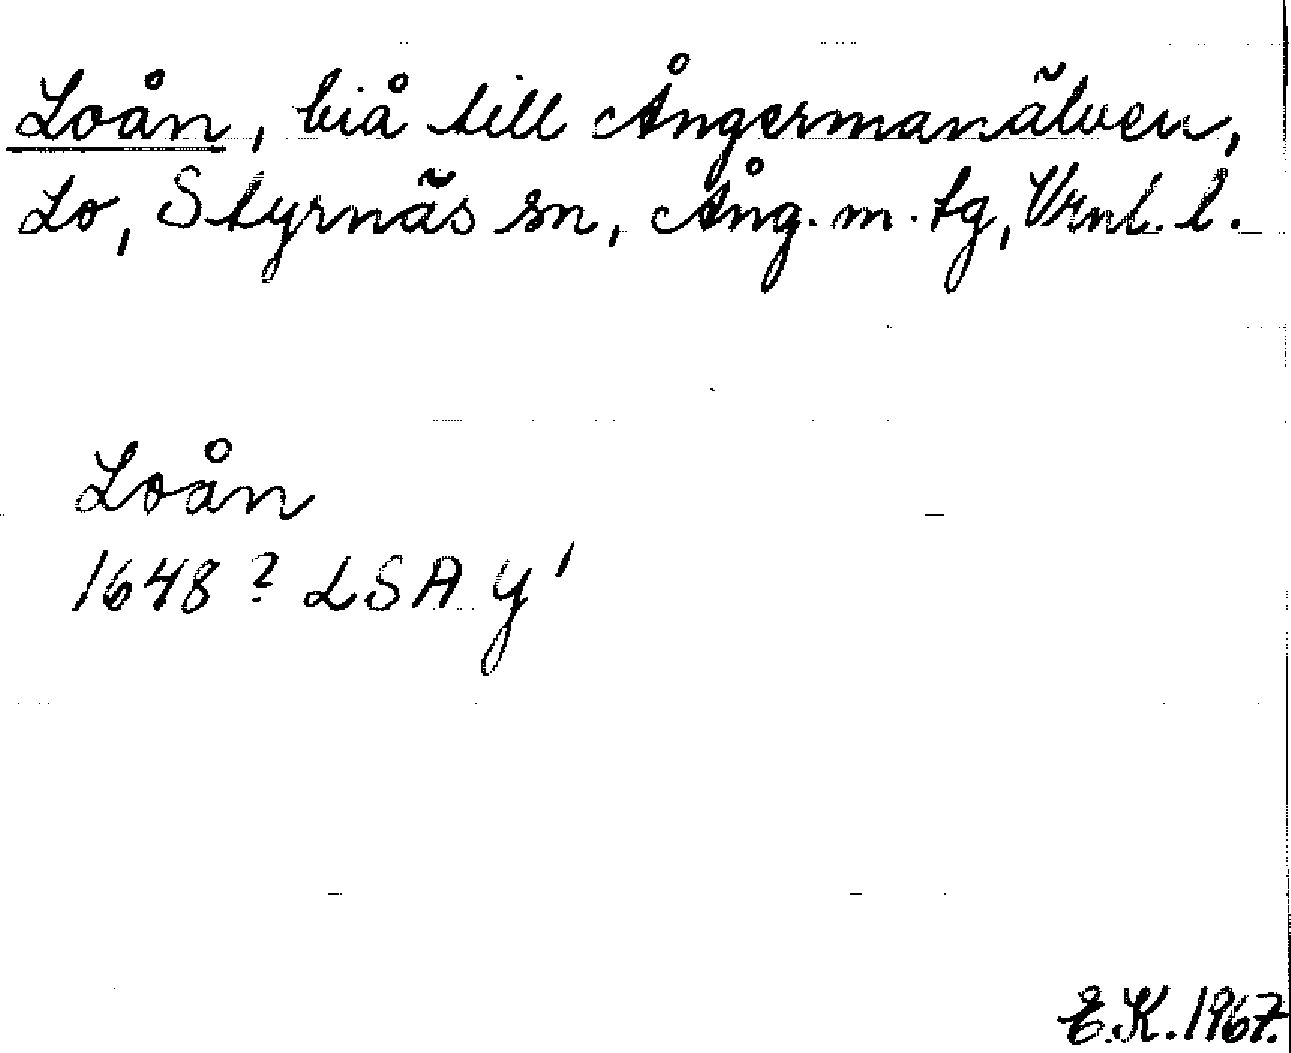 Loån, biå till Ångermanälven,
Lo, Styrnäs sn, Ång. m. tg, Vrnl. l.
Loån
1648? LSA Y'
E.K. 1967.